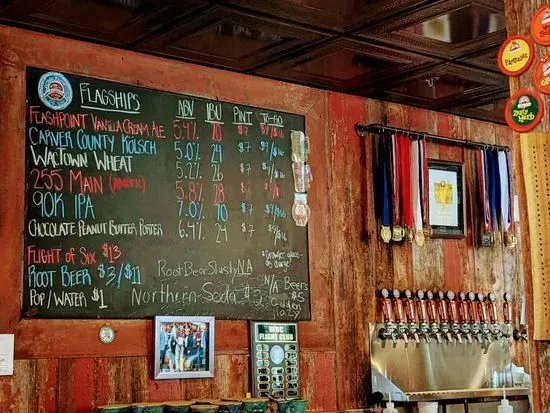 FLAGSHIPS ABV IBU PINT TO-GO
FLASHPOINT VANILLA CREAM ALE 5.4% 20 $7
CARVER COUNTY KÖLSCH 5.0% 24 $7 $9/$16
WACTOWN WHEAT 5.2% 26 $7
255 MAIN (AMBER) 5.8% 28 $7
90K IPA 7.0% 70 $7 $9/$16
CHOCOLATE PEANUT BUTTER PORTER 6.4% 24 $7 $9/$16
FLIGHT OF SIX $13
ROOT BEER $3/$11
POP/WATER $1
Root Beer Slushy NA
Northern Soda $3
Growler glass
N/A Beers
$5
WBC
FLIGHT CLUB